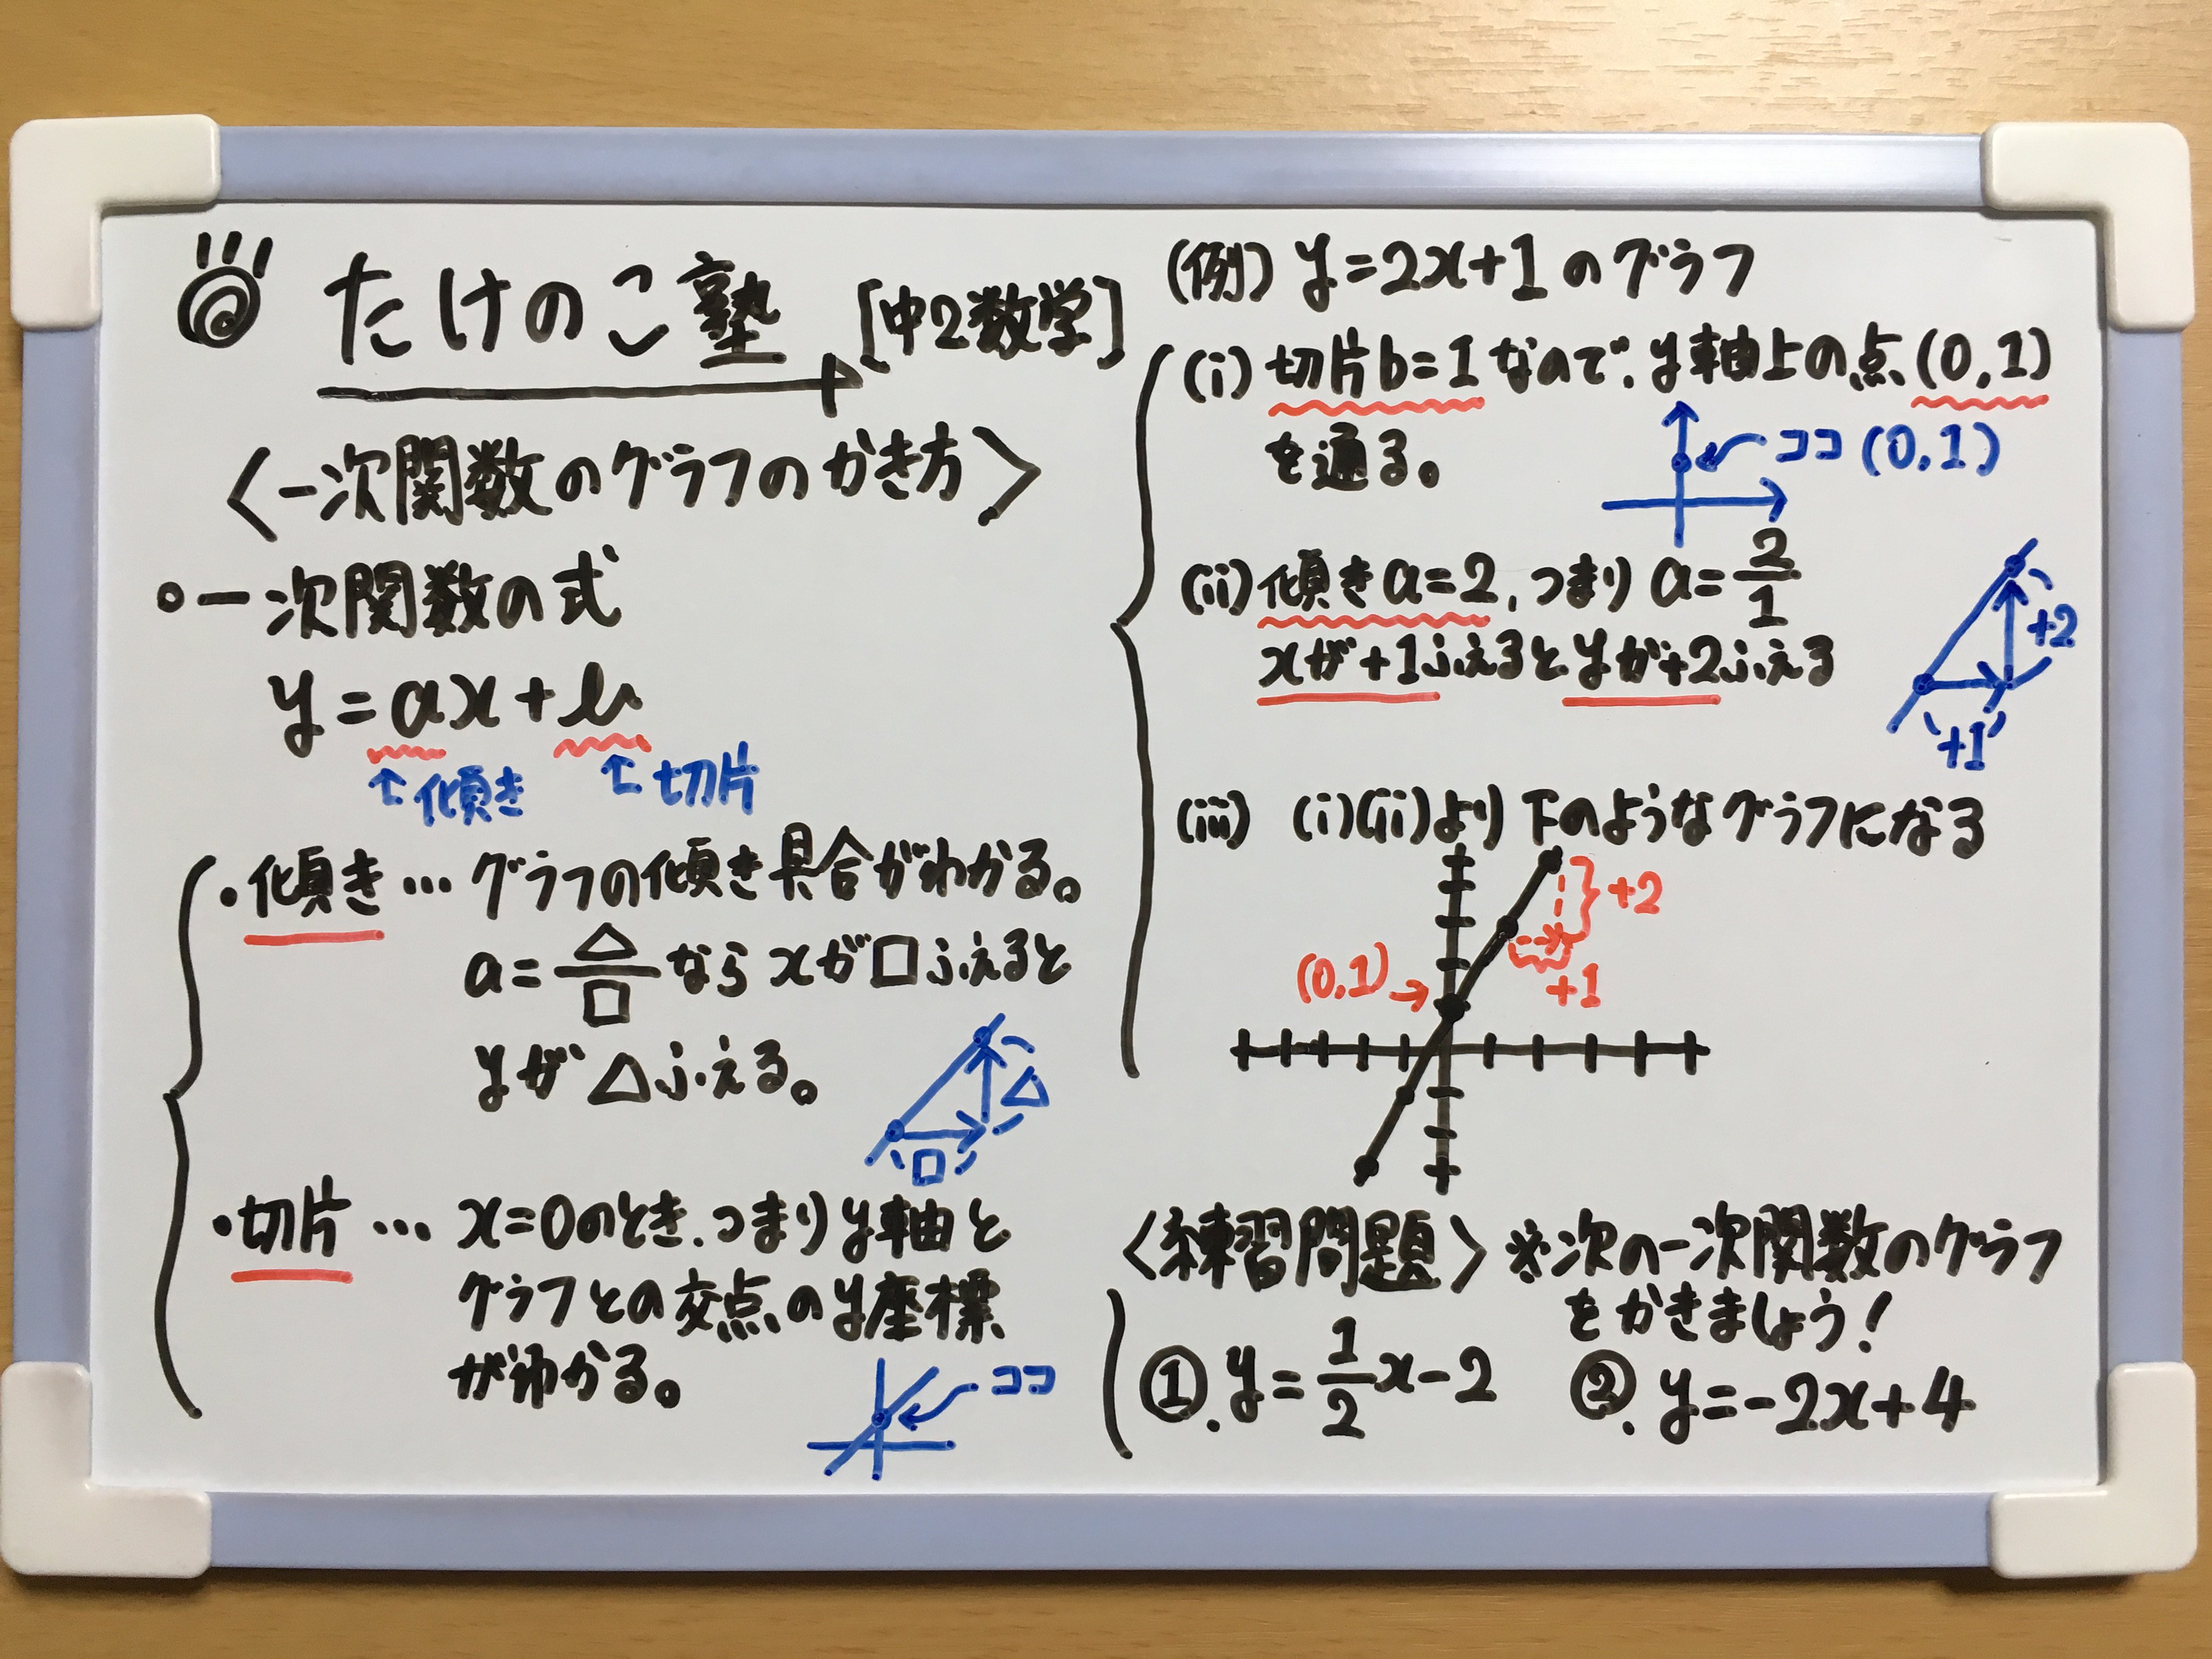 たけのこ塾 [中2数学]
〈一次関数のグラフのかき方〉
○一次関数の式
y=ax+b
↑傾き ↑切片
・傾き…グラフの傾き具合がわかる。
a=△/□ なら xが□ふえると
yが△ふえる。
△
□
・切片… x=0のとき、つまりy軸と
グラフとの交点のy座標
がわかる。
ココ
(例) y=2x+1のグラフ
(i) 切片b=1なので、y軸上の点(0,1)
を通る。
ココ(0,1)
(ii) 傾きa=2、つまり a=2/1
xが+1ふえるとyが+2ふえる
+2
+1
(iii) (i)(ii)より 下のようなグラフになる
+2
(0,1)→
+1
〈練習問題〉 ※次の一次関数のグラフ
をかきましょう!
①. y=1/2x-2 ②. y=-2x+4